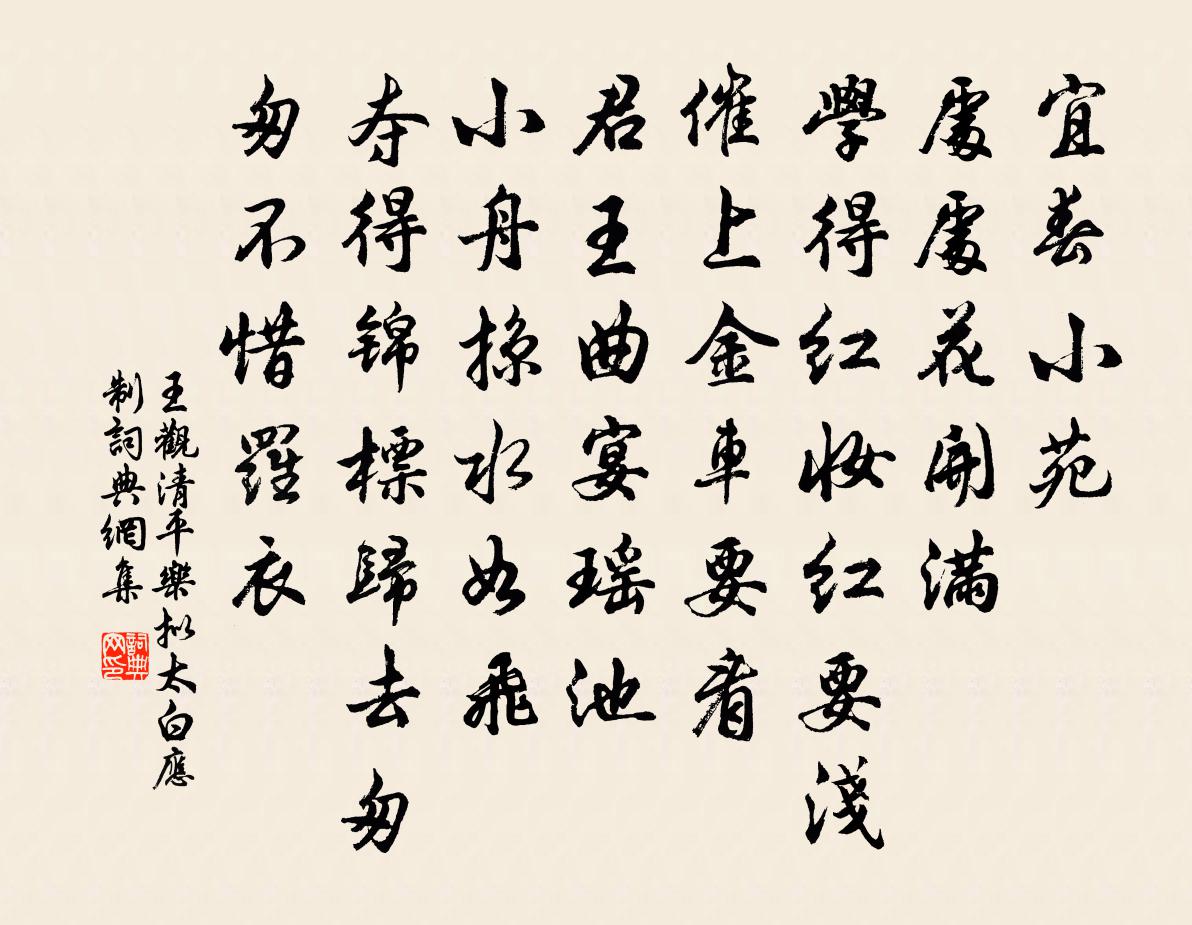 宜春小苑
處處花開滿
學得红妝红要淺
催上金車要看
君王曲宴瑶池
小舟掠水如飛
夺得锦標歸去匆
匆不惜羅衣
王觀清平樂拟太白應
制詞典網集
詞典网印